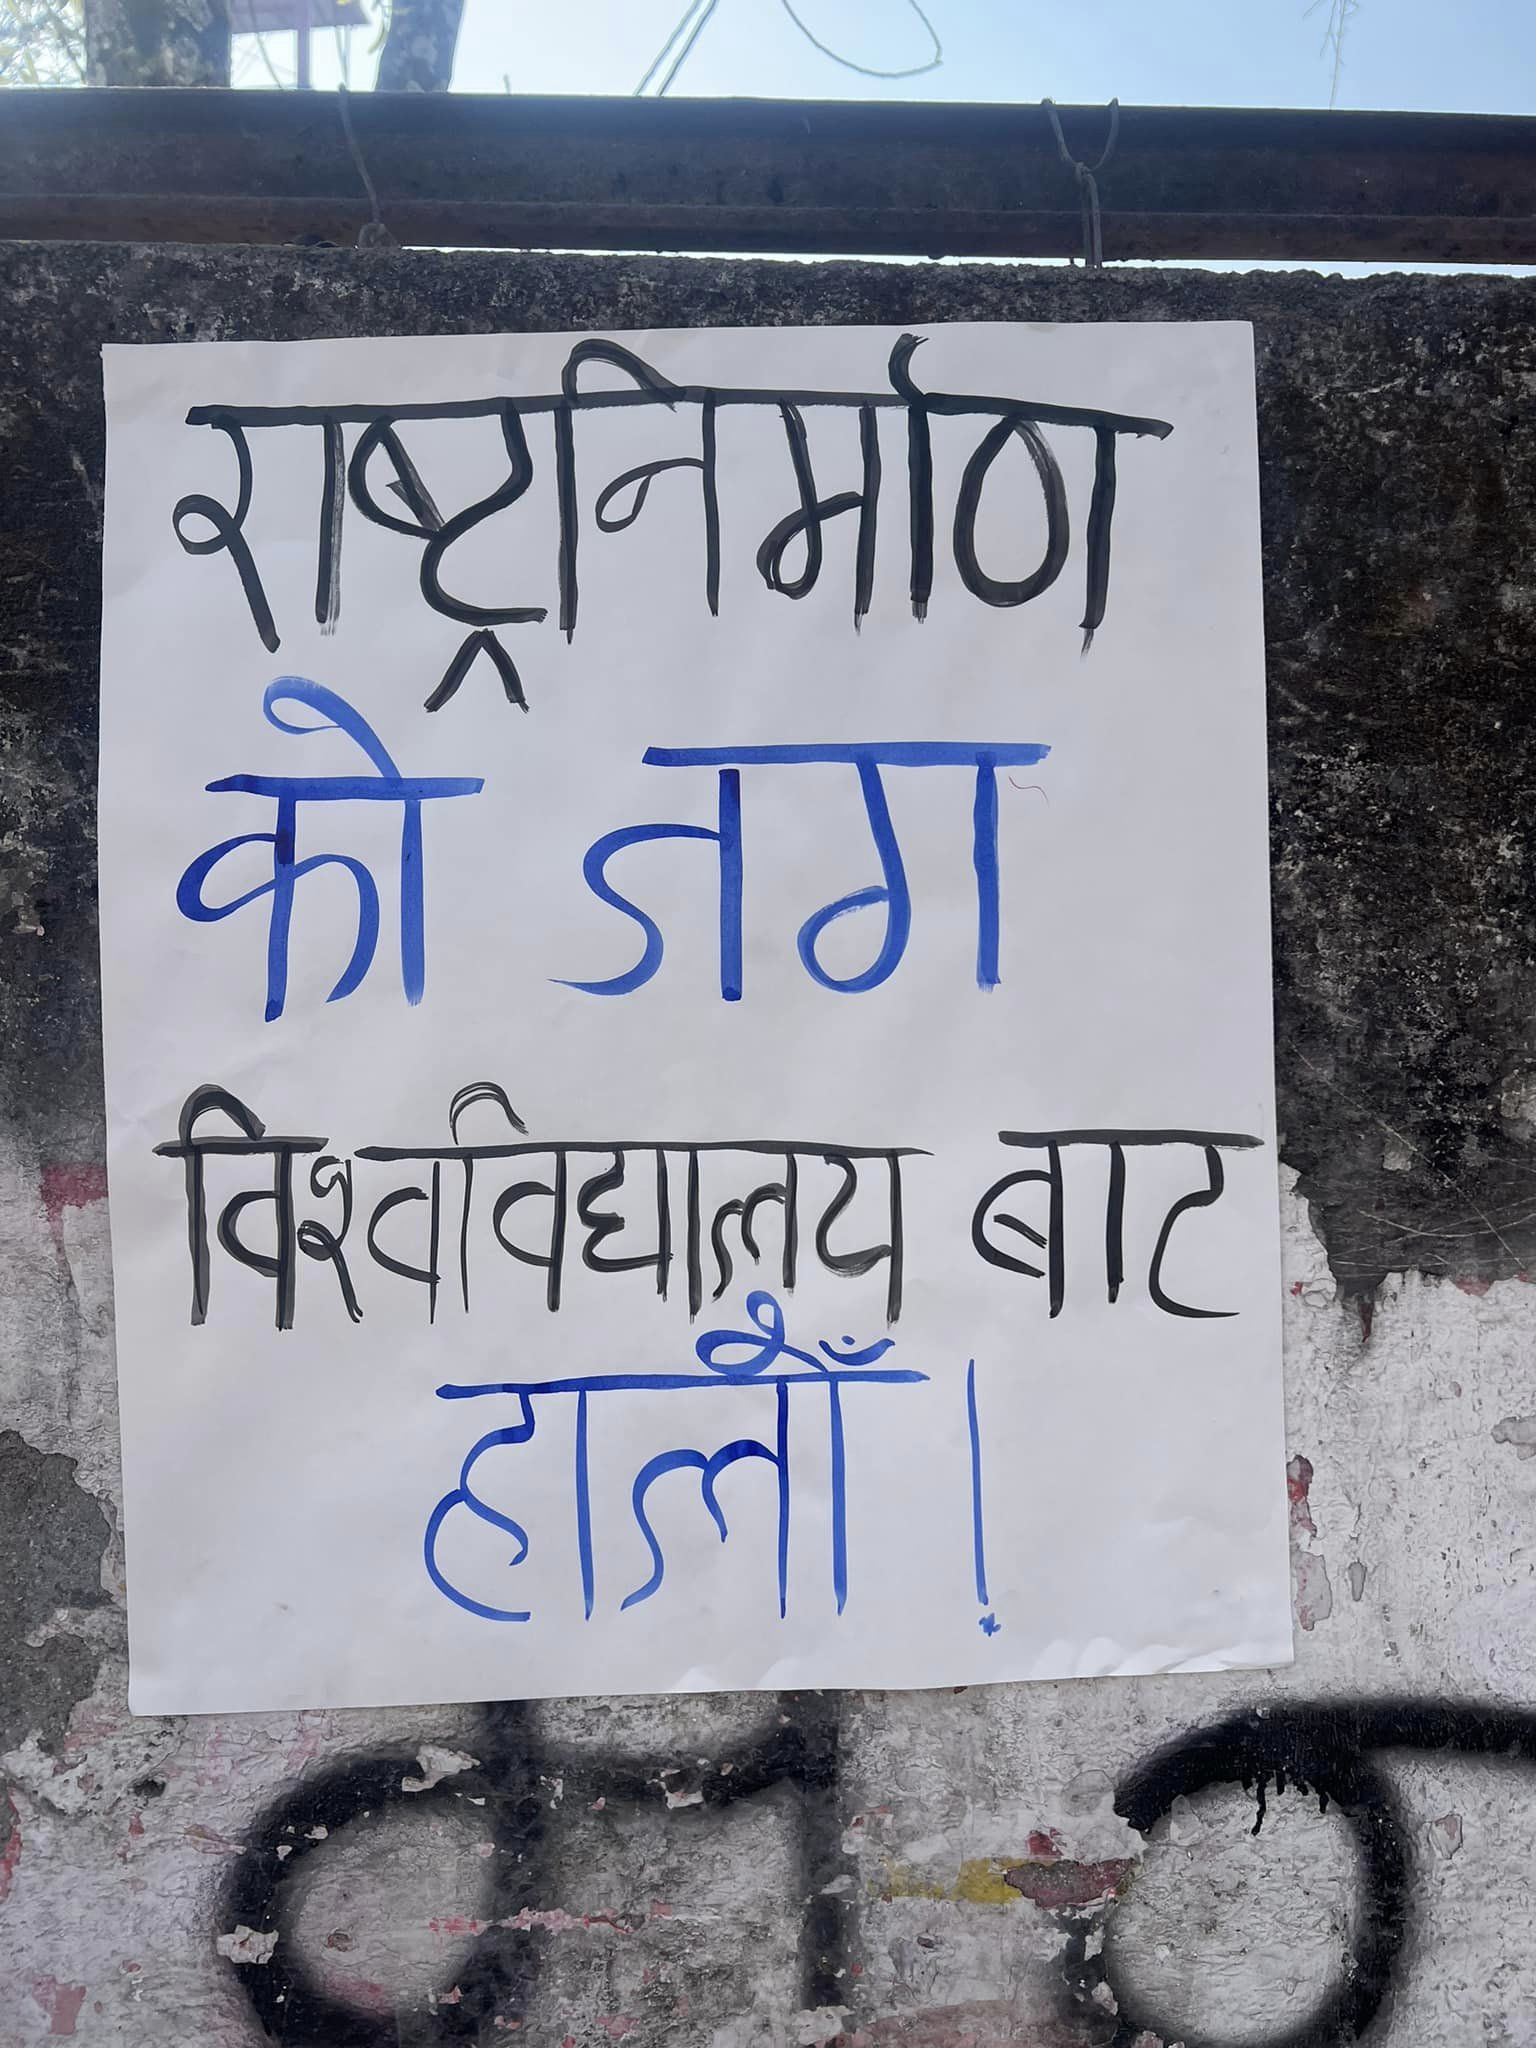 राष्ट्रनिर्माण
को जग
विश्वविद्यालय बाट
हालौँ!